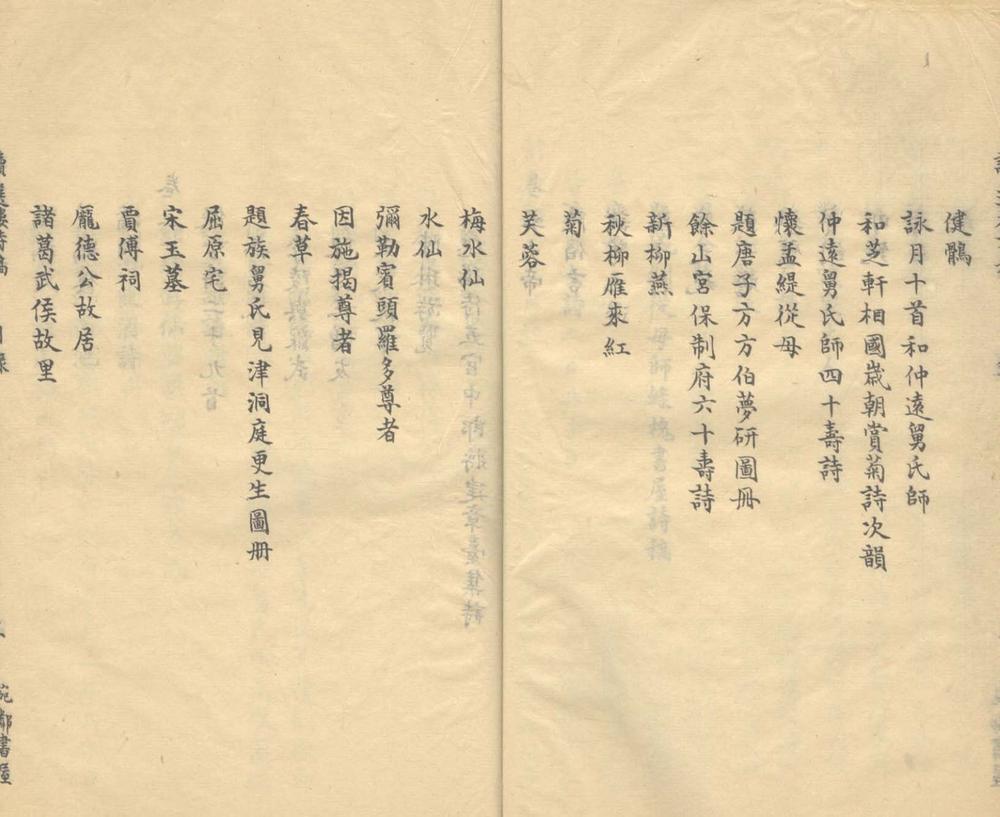 健鶻
詠月十首和仲遠舅氏師
和芝軒相國嵗朝賞菊詩次韻
仲遠舅氏師四十壽詩
懷孟緹從母
題唐子方方伯夢硏圖冊
餘山宮保制府六十壽詩
新柳燕
秋柳雁來紅
菊
芙蓉
梅水仙
水仙
彌勒賓頭羅多尊者
因施揭尊者
春草
題族舅氏見津洞庭更生圖册
屈原宅
宋玉墓
賈傅祠
龐德公故居
諸葛武侯故里
宛鄰書屋